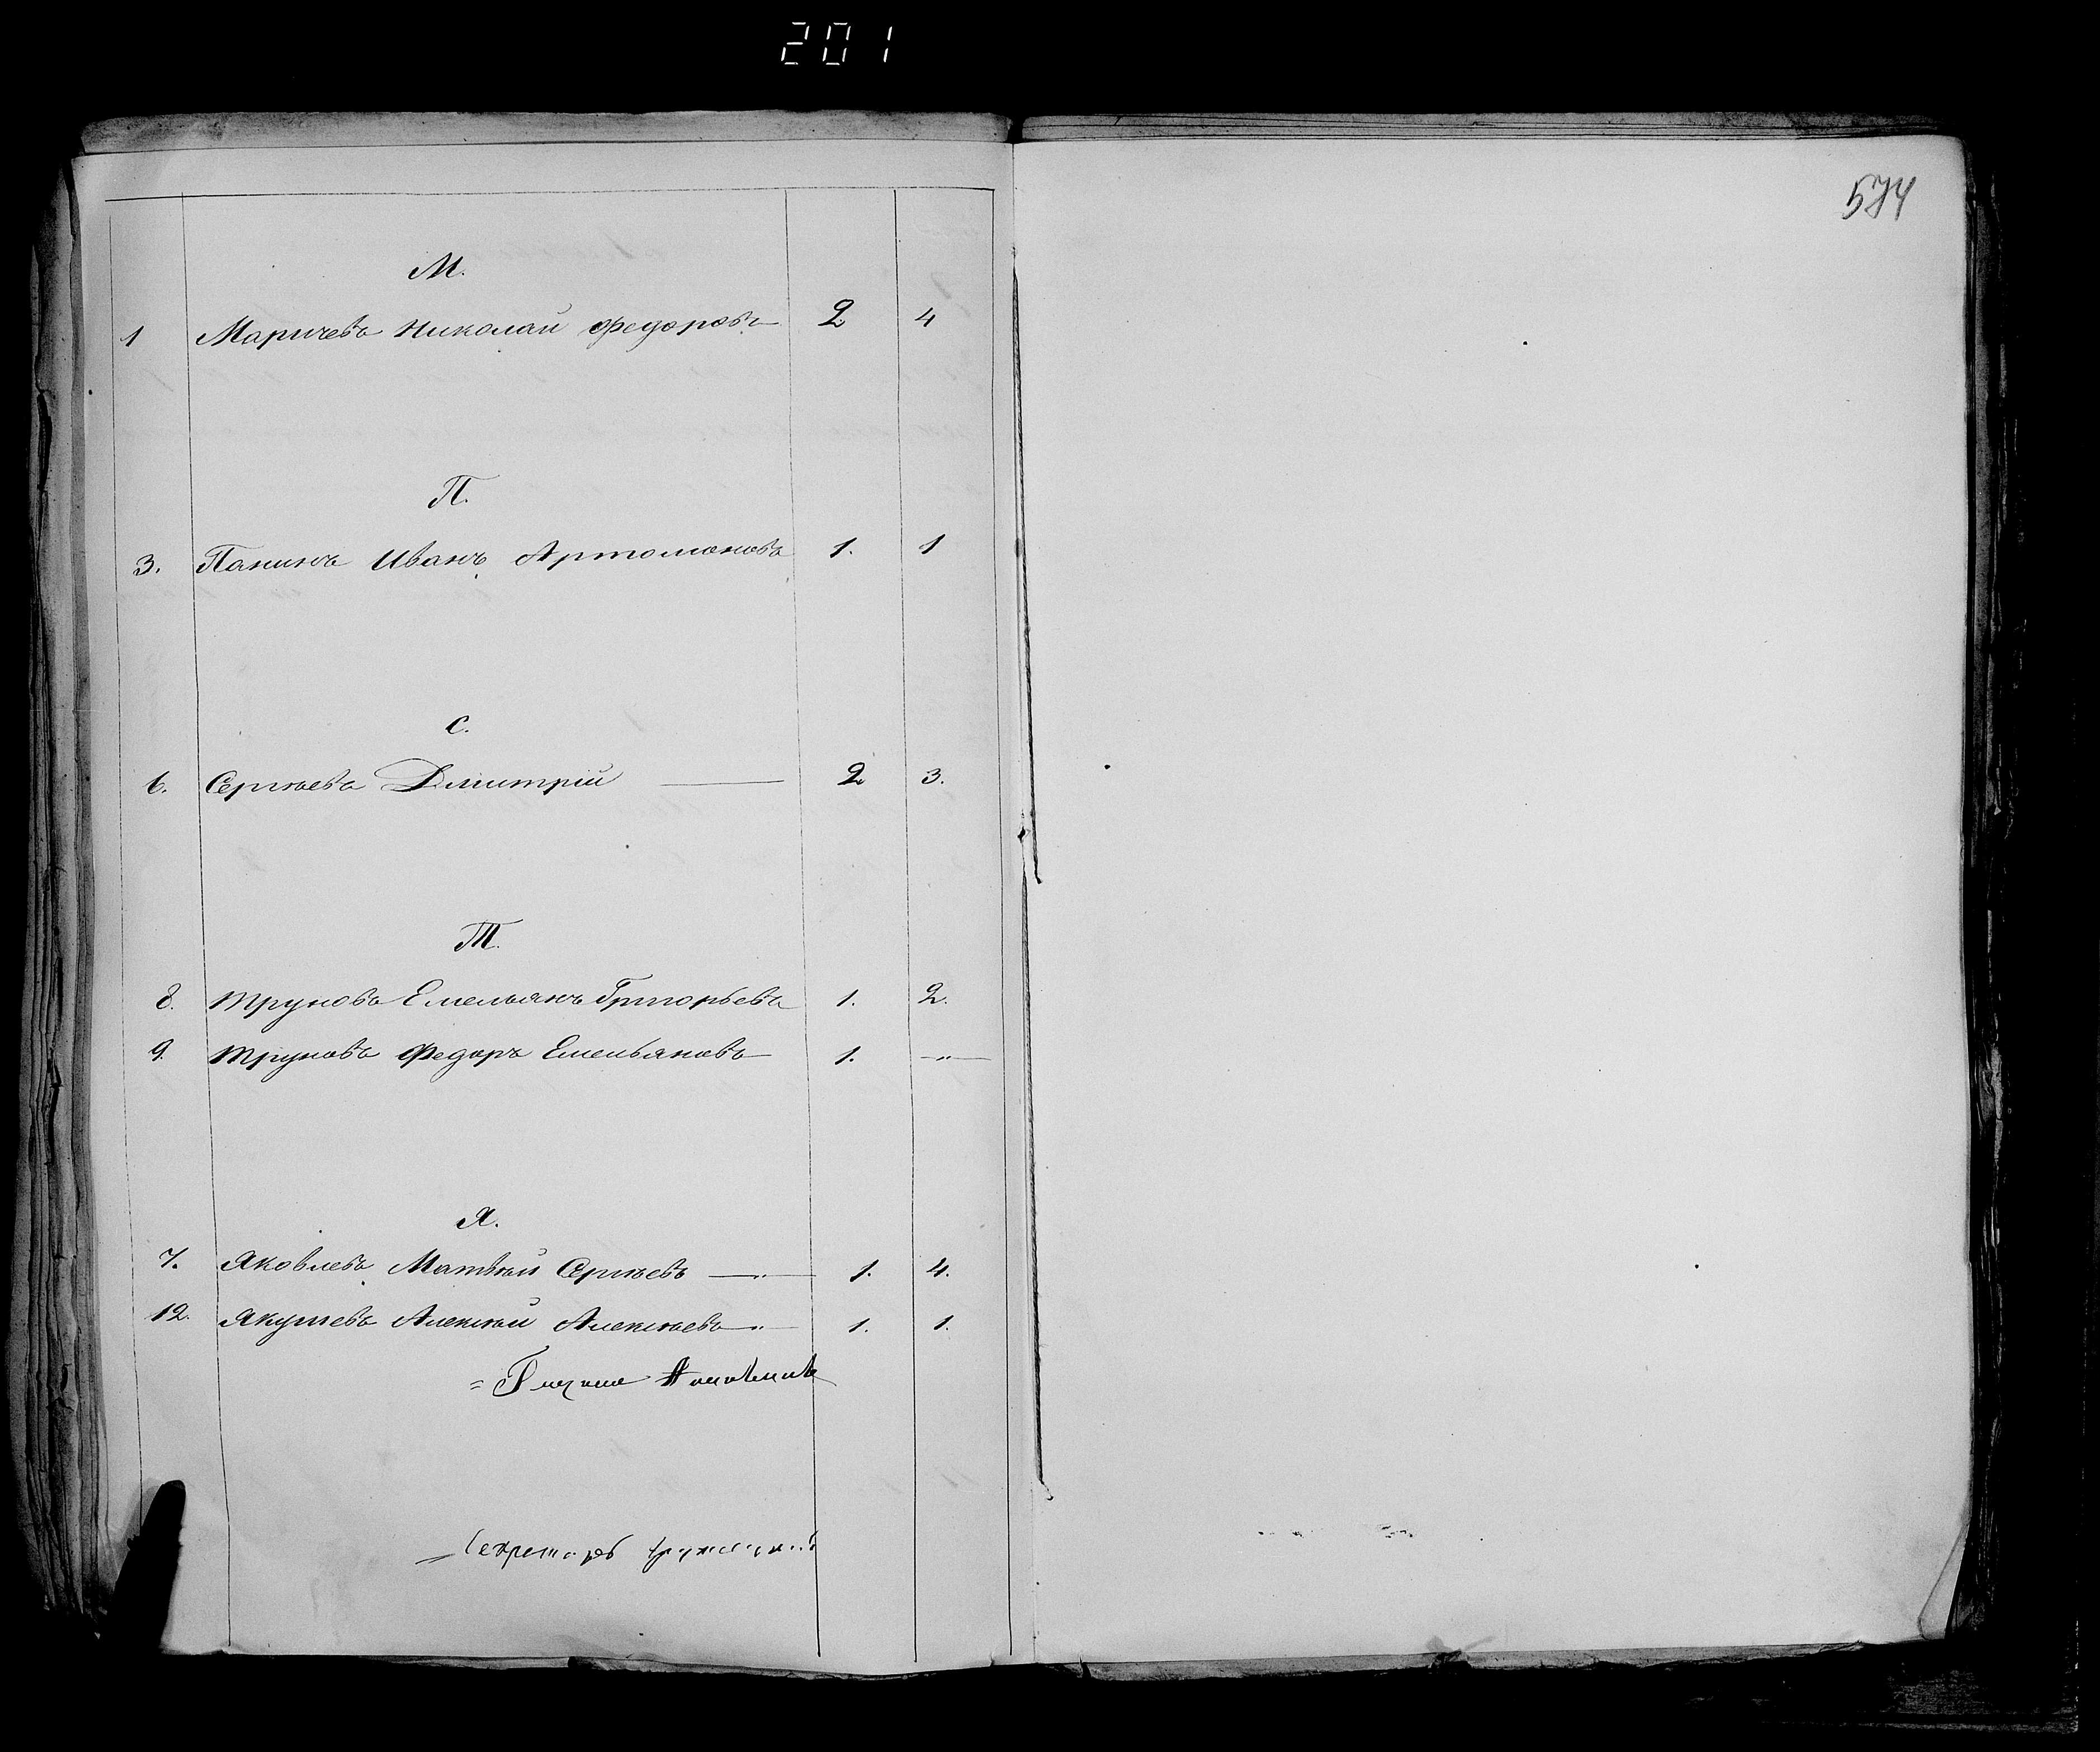 201
574
М.
1 Маричевъ Николай Федоровъ 2 4
П.
3. Панинъ Иванъ Артомоновъ 1. 1
С.
6. Сергѣевъ Дмитрій — 2 3.
Т.
8. Труновъ Емельянъ Григорьевъ 1. 2.
9. Труновъ Федоръ Емельяновъ 1. —„—
Я.
7. Яковлевъ Матвѣй Сергѣевъ —„— 1. 4.
12. Якушевъ Алексѣй Алексѣевъ —„— 1. 1.
Секретарь